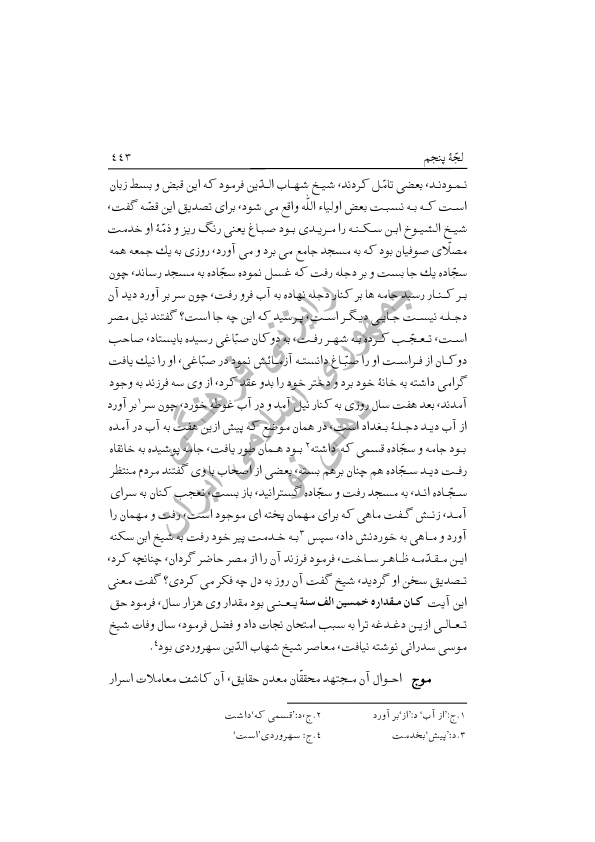 لجّهٔ پنجم ٤٤٣
نمودند، بعضی تامّل کردند، شیخ شهاب الدّین فرمود که این قبض و بسط زبان
است که به نسبت بعض اولیاء اللّه واقع می شود، برای تصدیق این قصّه گفت،
شیخ الشیوخ ابن سکنه را مریدی بود صباغ یعنی رنگ ریز و ذمّهٔ او خدمت
مصلّای صوفیان بود که به مسجد جامع می برد و می آورد، روزی به یك جمعه همه
سجّاده یك جا بست و بر دجله رفت که غسل نموده سجّاده به مسجد رساند، چون
بر کنار رسید جامه ها بر کنار دجله نهاده به آب فرو رفت، چون سر بر آورد دید آن
دجله نیست جایی دیگر است، پرسید که این چه جا است؟ گفتند نیل مصر
است، تعجّب کرده به شهر رفت، به دوکان صبّاغی رسیده بایستاد، صاحب
دوکان از فراست او را صبّاغ دانسته آزمائش نمود در صبّاغی، او را نیك یافت
گرامی داشته به خانهٔ خود برد و دختر خود را بدو عقد کرد، از وی سه فرزند به وجود
آمدند، بعد هفت سال روزی به کنار نیل آمد و در آب غوطه خورد، چون سر١ بر آورد
از آب دید دجلهٔ بغداد است، در همان موضع که پیش ازین هفت به آب در آمده
بود جامه و سجّاده قسمی که داشته٢ بود همان طور یافت، جامه پوشیده به خانقاه
رفت دید سجّاده هم چنان برهم بسته، بعضی از اصحاب با وی گفتند مردم منتظر
سجّاده اند، به مسجد رفت و سجّاده گسترانید، باز بست، تعجب کنان به سرای
آمد، زنش گفت ماهی که برای مهمان پخته ای موجود است، رفت و مهمان را
آورد و ماهی به خوردنش داد، سپس ٣به خدمت پیر خود رفت به شیخ ابن سکنه
این مقدّمه ظاهر ساخت، فرمود فرزند آن را از مصر حاضر گردان، چنانچه کرد،
تصدیق سخن او گردید، شیخ گفت آن روز به دل چه فکر می کردی؟ گفت معنی
این آیت کان مقداره خمسین الف سنة یعنی بود مقدار وی هزار سال، فرمود حق
تعالی ازین دغدغه ترا به سبب امتحان نجات داد و فضل فرمود، سال وفات شیخ
موسی سدرانی نوشته نیافت، معاصر شیخ شهاب الدّین سهروردی بود٤.
موج احوال آن مجتهد محققّان معدن حقایق، آن کاشف معاملات اسرار
١.ج:'از آب' د:'از'بر آورد ٢.ج،د:'قسمی که'داشت
٣.د:'پیش'بخدمت ٤.ج: سهروردی'است'
رایزنی فرهنگی
جمهوری اسلامی ایران
دهلی نو